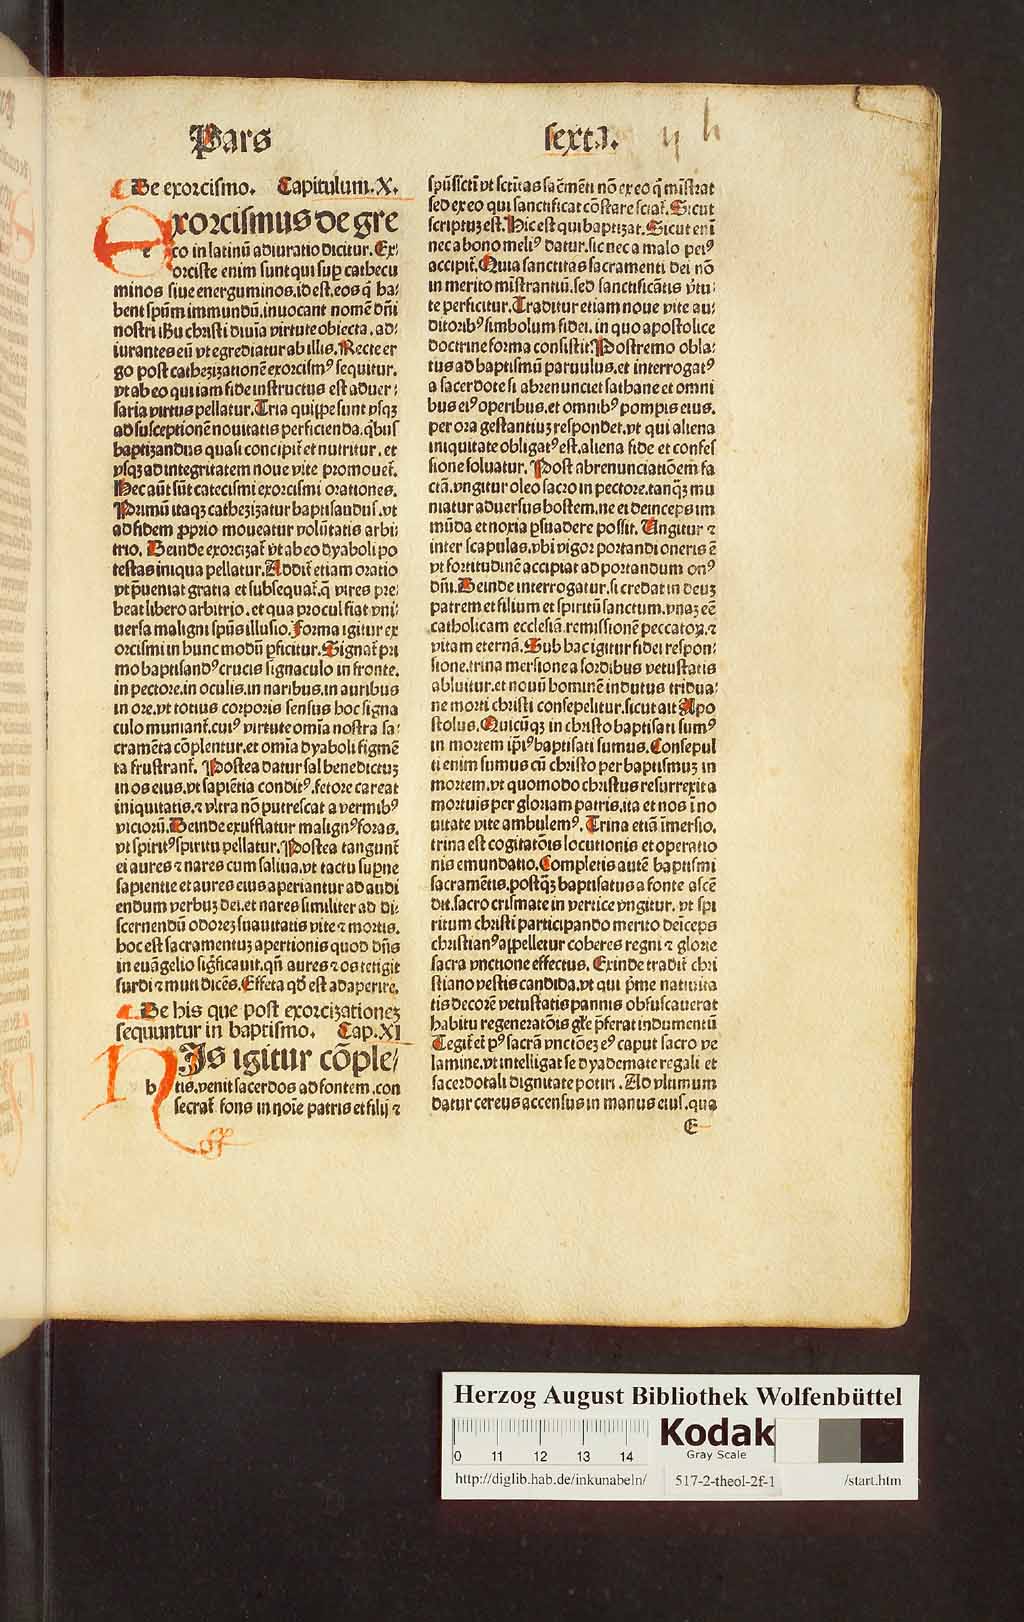 Pars sexta.
De exorcismo. Capitulum.X.
Exorcismus de gre
co in latinū adiuratio dicitur. Ex⸗
orciste enim sunt qui sup cathecu
minos siue energuminos.id est.eos q̄ ha⸗
bent spūm immundū.inuocant nomē dn̄i
nostri ihu christi diuīa virtute obiecta.ad⸗
iurantes eū vt egrediatur ab illis. Recte er
go post cathezizationē exorcismꝰ sequitur.
vt ab eo qui iam fide instructus est aduer⸗
saria virtus pellatur. Tria quippe sunt vsqꝫ
ad susceptionē nouitatis perficienda.q̄bus
baptizandus quasi concipit̄ et nutritur.et
vsqꝫ ad integritatem noue vite promouet̄.
Hec aūt sūt catecismi exorcismi orationes.
Primū itaqꝫ cathezizatur baptisandus.vt
ad fidem ꝓprio moueatur volūtatis arbi
trio. Deinde exorcizat̄ vt ab eo dyaboli po
testas iniqua pellatur. Addit̄ etiam oratio
vt p̄ueniat gratia et subsequat̄.q̄ vires pre⸗
beat libero arbitrio.et qua procul fiat vni⸗
uersa maligni spūs illusio. Forma igitur ex
orcismi in hunc modū ꝑficitur. Signat̄ pri
mo baptisandꝰ crucis signaculo in fronte.
in pectore.in oculis.in naribus.in auribus
in ore.vt totius corporis sensus hoc signa
culo muniant̄.cuiꝰ virtute omīa nostra sa⸗
cramēta cōplentur.et omīa dyaboli figmē
ta frustrant̄. Postea datur sal benedictuꝫ
in os eius.vt sapiētia conditꝰ.fetore careat
iniquitatis.⁊ vltra nō putrescat a vermibꝰ
viciorū. Deinde exufflatur malignꝰ foras.
vt spiritꝰ spiritu pellatur. Postea tangunt̄
ei aures ⁊ nares cum saliua.vt tactu supne
sapientie et aures eius aperiantur ad audi
endum verbuꝫ dei.et nares similiter ad di⸗
scernendū odoreꝫ suauitatis vite ⁊ mortis.
hoc est sacramentuꝫ apertionis quod dn̄s
in euāgelio sigficauit.qn̄ aures ⁊ os tetigit
surdi ⁊ muti dicēs. Effeta qd̄ est adaperire.
De his que post exorcizationeꝫ
sequuntur in baptismo. Cap.XI
His igitur cōple⸗
h tis.venit sacerdos ad fontem.con
secrat̄ fons in noīe patris et filij ⁊
spūssct̄i vt sct̄itas sacm̄enti nō ex eo q̄ mīstrat
sed ex eo qui sanctificat cōstare sciat̄. Sicut
scriptuꝫ est. Hic est qui baptizat. Sicut eni
nec a bono meliꝰ datur.sic nec a malo peiꝰ
accipit̄. Quia sanctitas sacramenti dei nō
in merito mīstrantiū.sed sanctificātis v̄tu⸗
te perficitur. Traditur etiam noue vite au⸗
ditoribꝰ simbolum fidei.in quo apostolice
doctrine forma consistit. Postremo obla⸗
tus ad baptismū paruulus.et interrogatꝰ
a sacerdote si abrenunciet sathane et omni
bus eiꝰ operibus.et omnibꝰ pompis eius.
per ora gestantiuꝫ respondet.vt qui aliena
iniquitate obligatꝰ est.aliena fide et confes
sione soluatur. Post abrenunciatiōem fa
ctā.vngitur oleo sacro in pectore.tanqꝫ mu
niatur aduersus hostem.ne ei deinceps im
mūda et noxia ꝑsuadere possit. Ungitur ⁊
inter scapulas.vbi vigor portandi oneris ē
vt fortitudinē accipiat ad portandum onꝰ
dn̄i. Deinde interrogatur.si credat in deuꝫ
patrem et filium et spiritū sanctum.vnaꝫ eē
catholicam ecclesiā.remissionē peccatoꝝ.⁊
vitam eternā. Sub hac igitur fidei respon⸗
sione.trina mersione a sordibus vetustatis
abluitur.et nouū hominē indutus tridua⸗
ne morti christi consepelitur.sicut ait Apo
stolus. Quicūqꝫ in christo baptisati sumꝰ
in mortem ip̄iꝰ baptisati sumus. Consepul
ti enim sumus cū christo per baptismuꝫ in
mortem.vt quomodo christus resurrexit a
mortuis per gloriam patris.ita et nos ī no
uitate vite ambulemꝰ. Trina etiā īmersio.
trina est cogitatōis locutionis et operatio
nis emundatio. Completis autē baptismi
sacramētis.postqꝫ baptisatus a fonte ascē
dit.sacro crismate in vertice vngitur.vt spi
ritum christi participando merito deīceps
christianꝰ appelletur coheres regni ⁊ glorie
sacra vnctione effectus. Exinde tradit̄ chri
stiano vestis candida.vt qui p̄me natiuita
tis decorē vetustatis pannis obfuscauerat
habitu regeneratōis gl̄e p̄ferat indumentū
Tegit̄ eī pꝰ sacrā vnctōeꝫ eꝰ caput sacro ve
lamine.vt intelligat se dyademate regali et
sacerdotali dignitate potiri. Ad vltimum
datur cereus accensus in manus eius.qua
E
Herzog August Bibliothek Wolfenbüttel
0 11 12 13 14
Kodak
Gray Scale
http://diglib.hab.de/inkunabeln/ 517-2-theol-2f-1 /start.htm